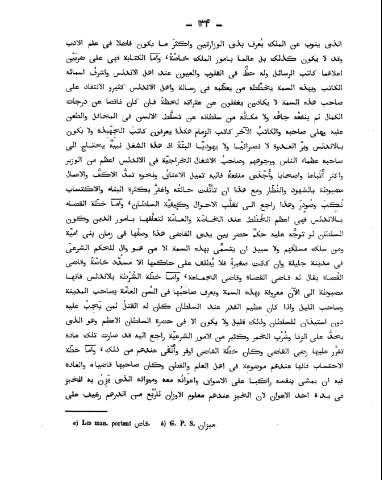 — ١٣٤ —
الذى ينوب عن الملك يُعرف بذى الوزارتين واكثر ما يكون فاضلا فى علم الادب
وقد لا يكون كذلك بل عالما بامور الملك خاصّة، وامّا الكتابة فهى على ضربين
اعلاهما كاتب الرسائل وله حظّ فى القلوب والعيون عند اهل الاندلس واشرف اسمائه
الكاتب وبهذه السمة يخصّه من يعظّمه فى رسالة واهل الاندلس كثيرو الانتقاد على
صاحب هذه السمة لا يكادون يغفلون عن عثراته لحظةً فان كان ناقصا عن درجات
الكمال لم ينفعه جاهُه ولا مكانُه من سلطانه من تسلّط الالسن فى المحافل والطعن
عليه وعلى صاحبه والكاتب الآخر كاتب الزمام هكذا يعرفون كاتب الجهبذة ولا يكون
بالاندلس وبرّ العدوة لا نصرانيًّا ولا يهوديًّا البتّة اذ هذا الشغل نبيه يحتاج الى
صاحبه عظماء الناس ووجوههم وصاحب الاشغال الخراجيّة فى الاندلس اعظم من الوزير
واكثر اتّباعا واصحابا وأجْدى منفعة فاليه تميل الاعناق ونحوه تمدّ الاكفّ والاعمال
مضبوطة بالشهود والنُظّار ومع هذا ان تأثّلت حالته واغترّ بكثرة البناء والاكتساب
نُكب وصُودر وهذا راجع الى تقلّب الاحوال وكيفيّة السلطان، وامّا خطّة القضاء
بالاندلس فهى اعظم الخُطَط عند الخاصّة والعامّة لتعلّقها بامور الدين وكون
السلطان لو توجّه عليه حكمٌ حضر بين يدى القاضى هذا وضعُها فى زمان بنى اميّة
ومن سلك مسلكهم ولا سبيل ان يتسمّى بهذه السمة الا من هو وال للحكم الشرعىّ
فى مدينة جليلة وان كانت صغيرة فلا يُطلق على حاكمها الا مسدّد خاصّة وقاضى
القضاة يقال له قاضى القضاة وقاضى الجماعة، وامّا خطّة الشُرْطة بالاندلس فانها
مضبوطة الى الآن معروفة بهذه السمة ويعرف صاحبُها فى ألسن العامّة بصاحب المدينة
وصاحب الليل واذا كان عظيم القدر عند السلطان كان له القتلُ لمن يَجِبُ عليه
دون استيذان للسلطان وذلك قليل ولا يكون الا فى حضرة السلطان الاعظم وهو الذى
يحدّ على الزنا وشُرْب الخمر وكثير من الامور الشرعيّة راجع اليه قد صارت تلك عادة
تقرّر عليها رضى القاضى وكان خطّة القاضى اوقر واتْقى عندهم من ذلك، وامّا خطّة
الاحتساب فانها عندهم موضوعة فى اهل العلم والفطن وكان صاحبها قاضيا، والعادة
فيه ان يمشى بنفسه راكبا على الاسواق واعوانُه معه وميزانُه الذى يزِنُ به الخبز
فى يد احد الاعوان لان الخبز عندهم معلوم الاوزان للرُبع من الدرهم رغيف على
a) Les man. portent خاصّ. b) G. P. S. ميزان.